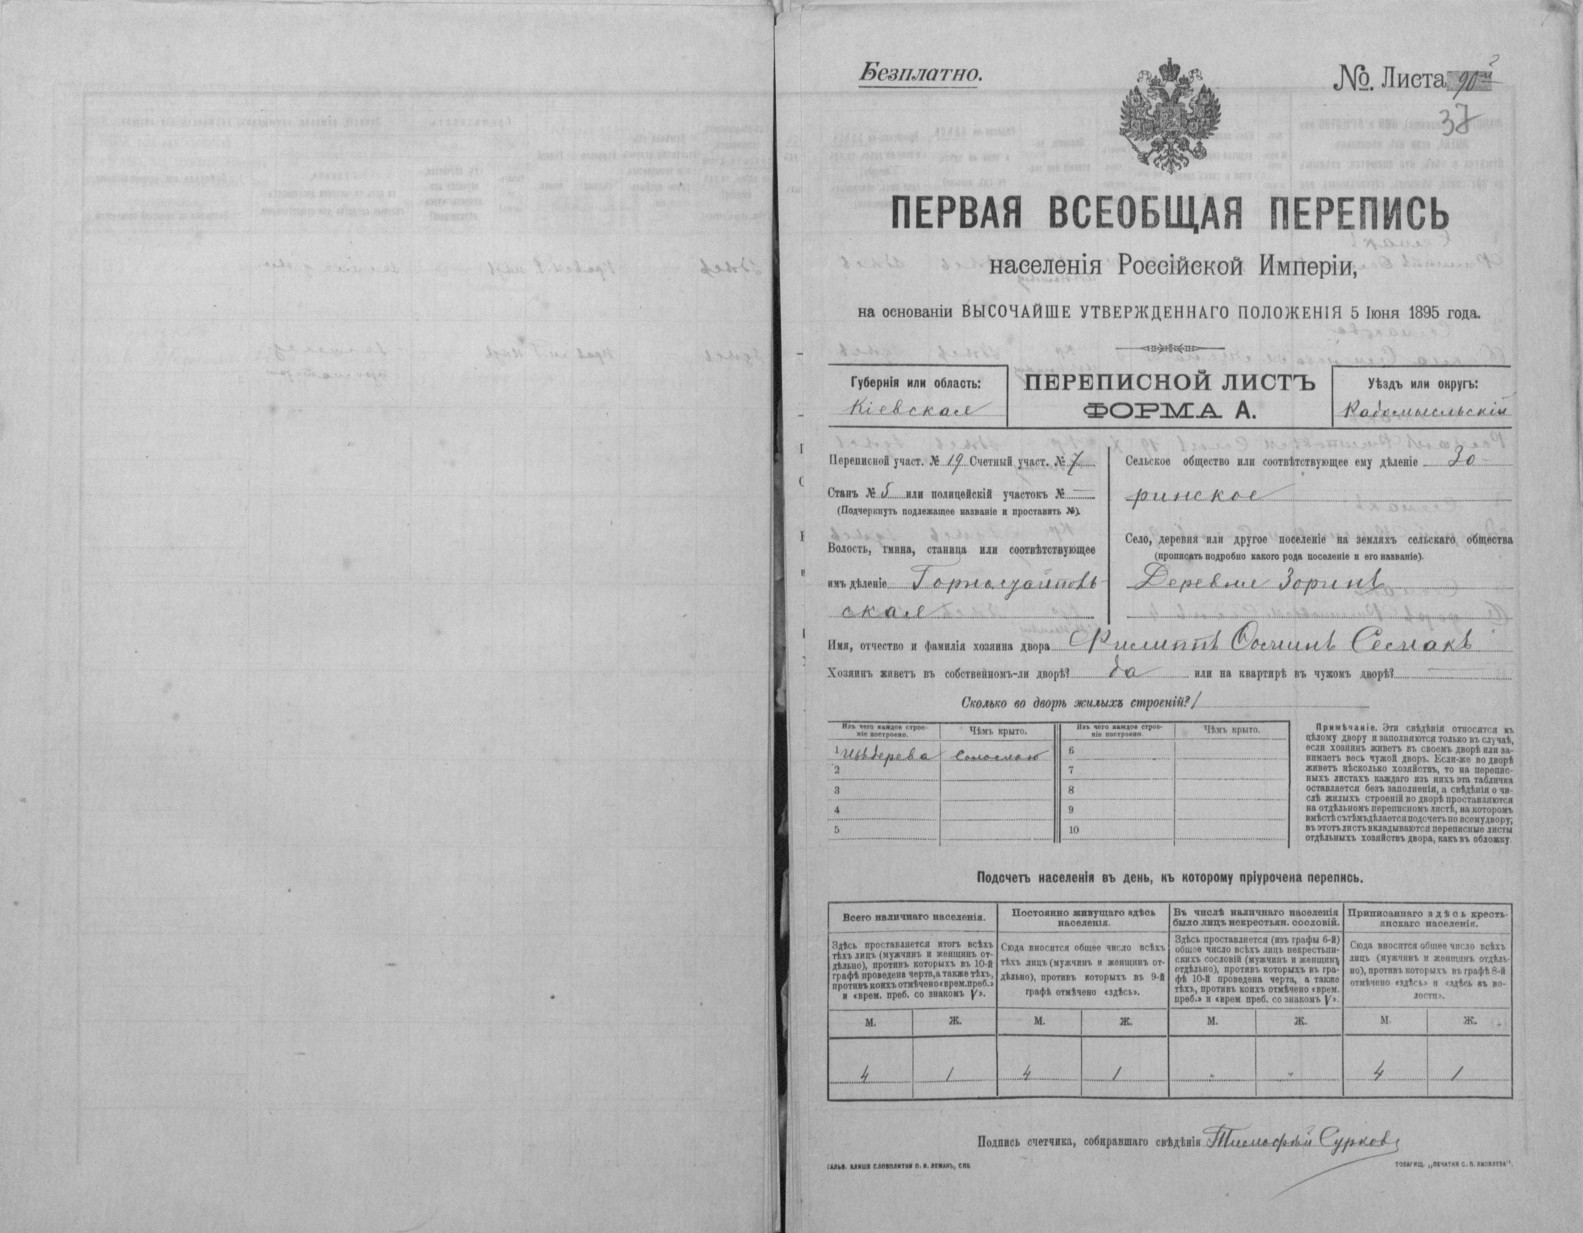 Безплатно.
№. Листа 90й
37
ПЕРВАЯ ВСЕОБЩАЯ ПЕРЕПИСЬ
населенія Россійской Имперіи,
на основаніи ВЫСОЧАЙШЕ УТВЕРЖДЕННАГО ПОЛОЖЕНІЯ 5 Іюня 1895 года.
Губернія или область:
Кіевская
ПЕРЕПИСНОЙ ЛИСТЪ
ФОРМА А.
Уѣздъ или округъ:
Радомысльскій
Переписной участ. № 19 Счетный участ. № 7
Станъ № 5 или полицейскій участокъ № —
(Подчеркнуть подлежащее названіе и проставить №).
Волость, гмина, станица или соотвѣтствующее
имъ дѣленіе Горностайповь-
ская
Сельское общество или соотвѣтствующее ему дѣленіе Зо-
ринское
Село, деревня или другое поселеніе на земляхъ сельскаго общества
(прописать подробно какого рода поселеніе и его названіе).
Деревня Зоринъ
Имя, отчество и фамилія хозяина двора Филиппъ Семакъ
Хозяинъ живетъ въ собственномъ-ли дворѣ? да или на квартирѣ въ чужомъ дворѣ? —
Сколько во дворѣ жилыхъ строеній? 1
Изъ чего каждое строе-
ніе построено.
Чѣмъ крыто.
Изъ чего каждое строе-
ніе построено.
Чѣмъ крыто.
1 Изъ дерева Соломою 6
2 7
3 8
4 9
5 10
Примѣчаніе. Эти свѣдѣнія относятся къ
цѣлому двору и заполняются только въ случаѣ,
если хозяинъ живетъ въ своемъ дворѣ или за-
нимаетъ весь чужой дворъ. Если-же во дворѣ
живетъ нѣсколько хозяйствъ, то на перепис-
ныхъ листахъ каждаго изъ нихъ эта табличка
оставляется безъ заполненія, а свѣдѣнія о чи-
слѣ жилыхъ строеній во дворѣ проставляются
на отдѣльномъ переписномъ листѣ, на которомъ
вмѣстѣ съ тѣмъ дѣлается подсчетъ по всему двору;
въ этотъ листъ вкладываются переписные листы
отдѣльныхъ хозяйствъ двора, какъ въ обложку.
Подсчетъ населенія въ день, къ которому пріурочена перепись.
Всего наличнаго населенія.
Здѣсь проставляется итогъ всѣхъ
тѣхъ лицъ (мужчинъ и женщинъ от-
дѣльно), противъ которыхъ въ 10-й
графѣ проведена черта, а также тѣхъ,
противъ коихъ отмѣчено «врем. преб.»
и «врем. преб. со знакомъ V».
Постоянно живущаго здѣсь
населенія.
Сюда вносится общее число всѣхъ
тѣхъ лицъ (мужчинъ и женщинъ от-
дѣльно), противъ которыхъ въ 9-й
графѣ отмѣчено «здѣсь».
Въ числѣ наличнаго населенія
было лицъ некрестьян. сословій.
Здѣсь проставляется (изъ графы 6-й)
общее число всѣхъ лицъ некрестьян-
скихъ сословій (мужчинъ и женщинъ
отдѣльно), противъ которыхъ въ гра-
фѣ 10-й проведена черта, а также
тѣхъ, противъ коихъ отмѣчено «врем.
преб.» и «врем преб. со знакомъ V».
Приписаннаго здѣсь кресть-
янскаго населенія.
Сюда вносится общее число всѣхъ
лицъ (мужчинъ и женщинъ отдѣль-
но), противъ которыхъ въ графѣ 8-й
отмѣчено «здѣсь» и «здѣсь въ во-
лости».
М. Ж. М. Ж. М. Ж. М. Ж.
4 1 4 1 „ „ 4 1
Подпись счетчика, собиравшаго свѣдѣнія Тимофѣй Сурковъ
ГАЛЬВ. КЛИШЕ СЛОВОЛИТНИ О. И. ЛЕМАНЪ, СПБ
ТОВАРИЩ. „ПЕЧАТНЯ С. П. ЯКОВЛЕВА“.